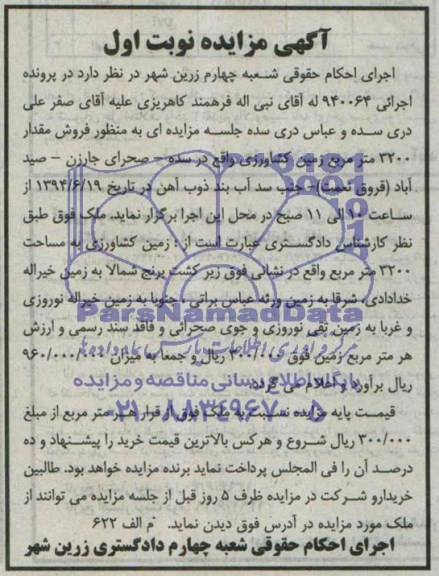 آگهی مزایده نوبت اول
اجرای احکام حقوقی شعبه چهارم زرین شهر در نظر دارد در پرونده
اجرائی ۹۴۰۰۶۴ له آقای نبی اله فرهمند کاهریزی علیه آقای صفر علی
دری سده و عباس دری سده جلسه مزایده ای به منظور فروش مقدار
۳۲۰۰ متر مربع زمین کشاورزی واقع در سده – صحرای جارزن – صید
آباد (قروق نعمت)- جنب سد آب بند ذوب آهن در تاریخ ۱۳۹۴/۶/۱۹ از
ساعت ۱۰ الی ۱۱ صبح در محل این اجرا برگزار نماید. ملک فوق طبق
نظر کارشناس دادگستری عبارت است از : زمین کشاورزی به مساحت
۳۲۰۰ متر مربع واقع در نشانی فوق زیر کشت برنج شمالا به زمین خیراله
خدادادی، شرقا به زمین ورثه عباس براتی ، جنوبا به زمین خیراله نوروزی
و غربا به زمین تقی نوروزی و جوی صحرائی و فاقد سند رسمی و ارزش
هر متر مربع زمین فوق ۳۰۰/۰۰۰ ریال و جمعا به میزان ۹۶۰/۰۰۰/۰۰۰
ریال برآورد و اعلام می گردد.
قیمت پایه مزایده نسبت به ملک فوق از قرار هر متر مربع از مبلغ
۳۰۰/۰۰۰ ریال شروع و هرکس بالاترین قیمت خرید را پیشنهاد و ده
درصد آن را فی المجلس پرداخت نماید برنده مزایده خواهد بود. طالبین
خریدارو شرکت در مزایده ظرف ۵ روز قبل از جلسه مزایده می توانند از
ملک مورد مزایده در آدرس فوق دیدن نماید. م الف ۶۲۲
اجرای احکام حقوقی شعبه چهارم دادگستری زرین شهر
ParsNamadData
پایگاه اطلاع رسانی مناقصه و مزایده
۰۲۱-۸۸۳۴۹۶۷۰-۵